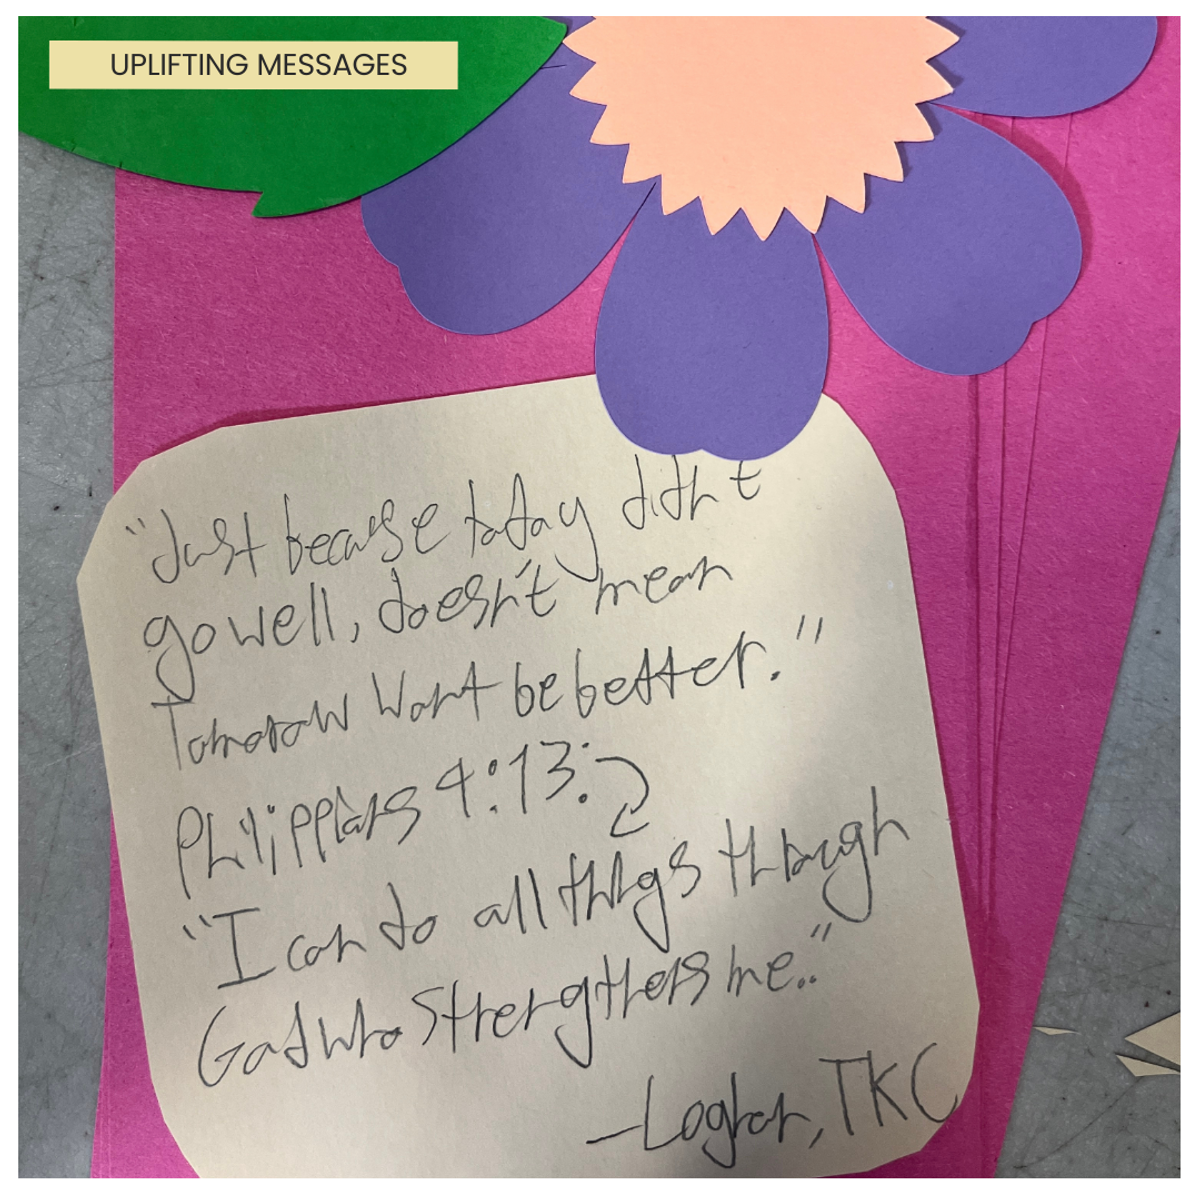 UPLIFTING MESSAGES
"Just because today didn't
go well, doesn't mean
Tomorow Won't be better."
Philippians 4:13:
"I can do all things through
God who Strengthens me.."
-Loghan, TKC